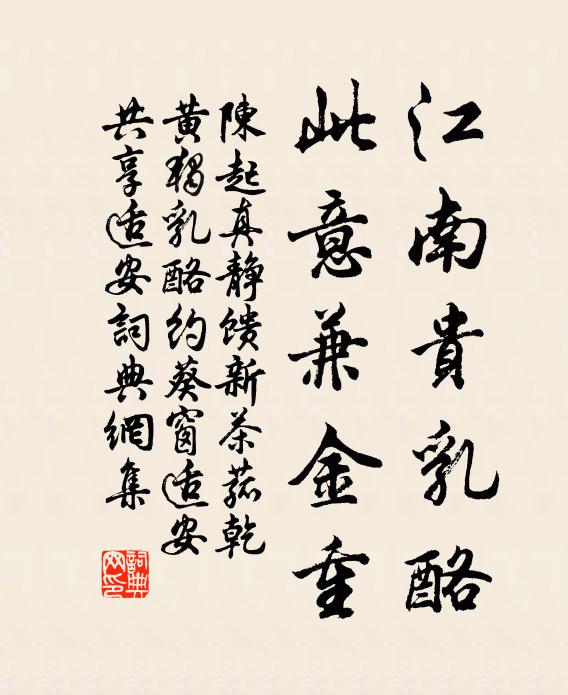 江南貴乳酪
此意兼金重
陳起真靜馈新茶菰乾
黃獨乳酪約葵窗适安
共享适安詞典網集
詞典網印